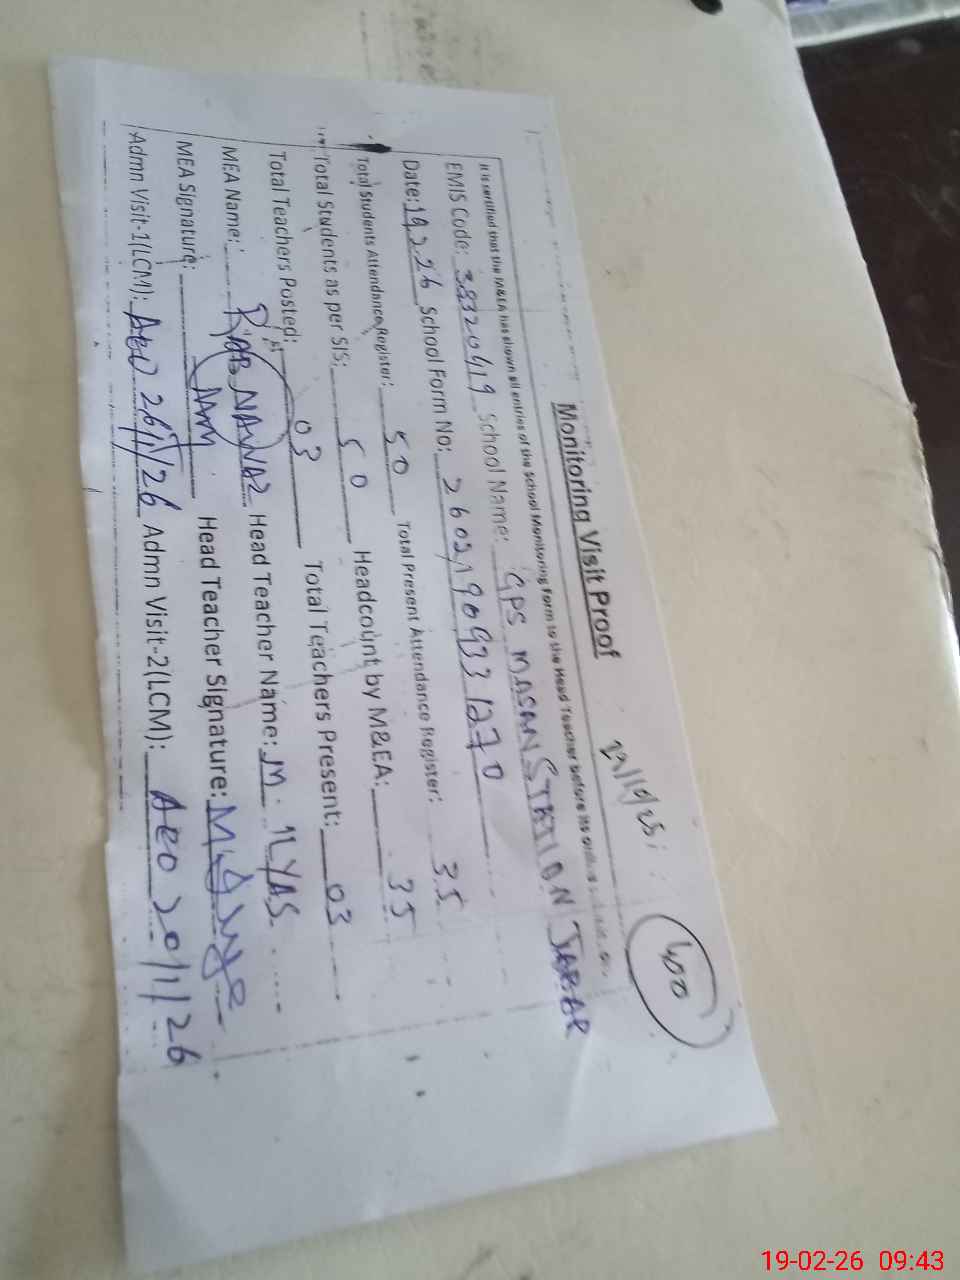 Monitoring Visit Proof
400
It is certified that the M&EA has shown all entries of the School Monitoring Form to the Head Teacher before its
EMIS Code: 38320419 School Name: GPS MASAN STATION JABAR
Date: 19.2.26 School Form No: 26021909331270
Total Students Attendance Register: 50 Total Present Attendance Register: 35
Total Students as per SIS: 50 Headcount by M&EA: 35
Total Teachers Posted: 03 Total Teachers Present: 03
MEA Name: RAB NAWAZ Head Teacher Name: M. ILYAS
MEA Signature: Head Teacher Signature:
Admn Visit-1(LCM): AEO 26/1/26 Admn Visit-2(LCM): AEO 20/1/26
19-02-26 09:43